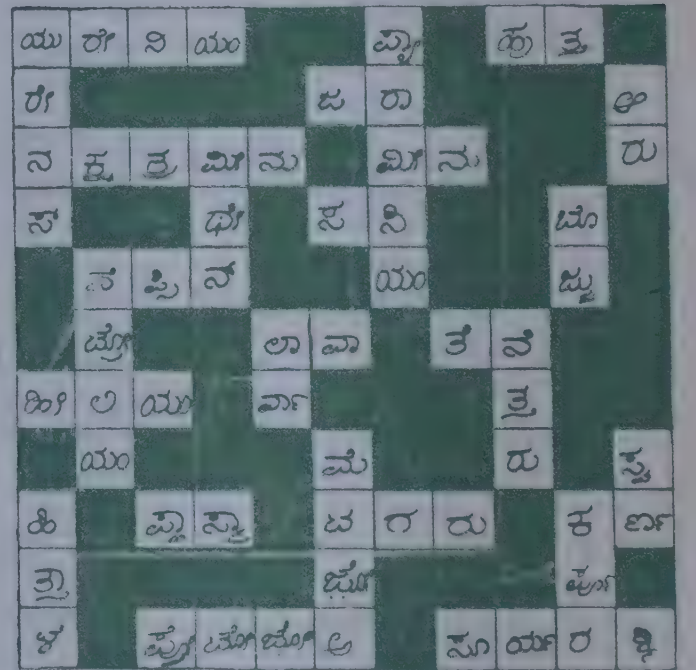 ಯು ರೇ ನಿ ಯಂ ಪ್ಯಾ ಹು ತ್ತ
ರೇ ಜ ರಾ ಆ
ನ ಕ್ಷ ತ್ರ ಮೀ ನು ಮೀ ನು ರು
ಸ್ ಥೇ ಸ ಸಿ ಬೊ
ಪೆ ಪ್ಸಿ ನ್ ಯಂ ಜ್ಜು
ಟ್ರೋ ಲಾ ವಾ ತೆ ನೆ
ಹೀ ಲಿ ಯಂ ರ್ವಾ ತ್ತ
ಯಂ ಮೆ ರು ಸ್ವ
ಹಿ ಪ್ಲಾ ಸ್ಮಾ ಟ ಗ ರು ಕ ರ್ಣ
ತ್ತಾ ಜೋ ರ್ಪೂ
ಳೆ ಪ್ರೋ ಟೋ ಜೋ ಅ ಸೂ ರ್ಯ ರ ಶ್ಮಿ